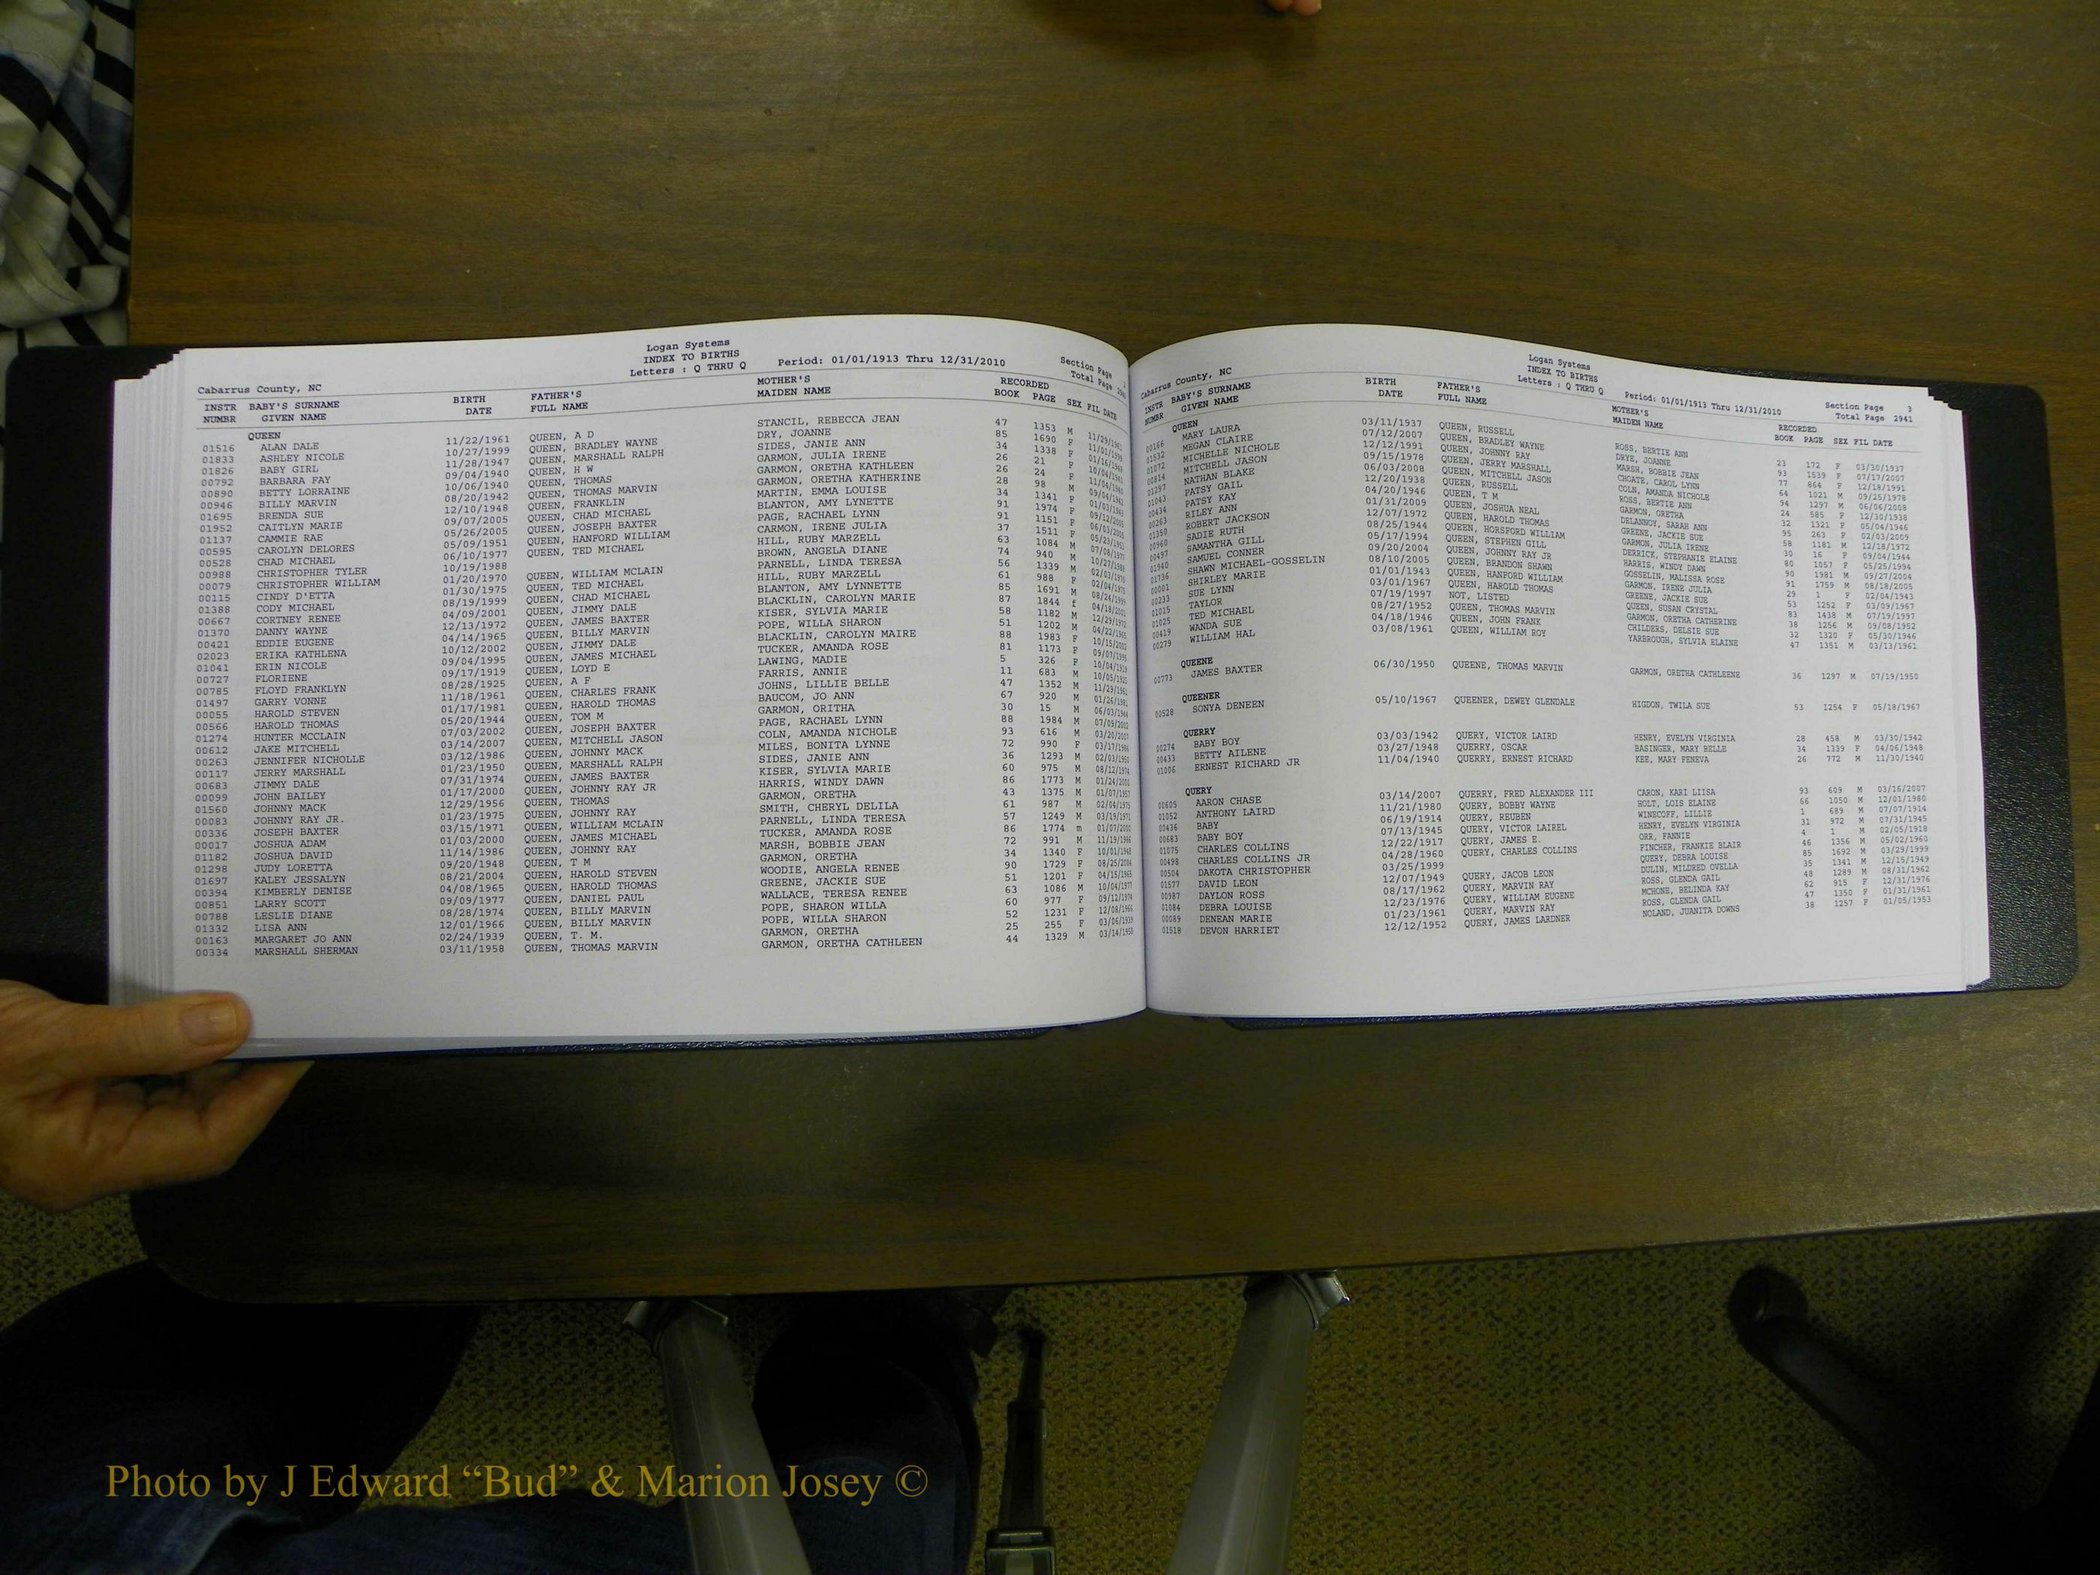 Logan Systems
INDEX TO BIRTHS
Cabarrus County, NC Letters : Q THRU Q Period: 01/01/1913 Thru 12/31/2010 Section Page
Total Page
INSTR BABY'S SURNAME BIRTH FATHER'S MOTHER'S RECORDED
NUMBR GIVEN NAME DATE FULL NAME MAIDEN NAME BOOK PAGE SEX FIL DATE
QUEEN
01516 ALAN DALE 11/22/1961 QUEEN, A D STANCIL, REBECCA JEAN 47 1353 M
01833 ASHLEY NICOLE 10/27/1999 QUEEN, BRADLEY WAYNE DRY, JOANNE 85 1690 F 11/01/1999
01826 BABY GIRL 11/28/1947 QUEEN, MARSHALL RALPH SIDES, JANIE ANN 34 1338 F
00792 BARBARA FAY 09/04/1940 QUEEN, H W GARMON, JULIA IRENE 26 21 F
00890 BETTY LORRAINE 10/06/1940 QUEEN, THOMAS GARMON, ORETHA KATHLEEN 26 24 F
00946 BILLY MARVIN 08/20/1942 QUEEN, THOMAS MARVIN GARMON, ORETHA KATHERINE 28 98 M
01695 BRENDA SUE 12/10/1948 QUEEN, FRANKLIN MARTIN, EMMA LOUISE 34 1341 F
01952 CAITLYN MARIE 09/07/2005 QUEEN, CHAD MICHAEL BLANTON, AMY LYNETTE 91 1974 F
01137 CAMMIE RAE 05/26/2005 QUEEN, JOSEPH BAXTER PAGE, RACHAEL LYNN 91 1151 F
00595 CAROLYN DELORES 05/09/1951 QUEEN, HANFORD WILLIAM CARMON, IRENE JULIA 37 1511 F
00528 CHAD MICHAEL 06/10/1977 QUEEN, TED MICHAEL HILL, RUBY MARZELL 63 1084 M
00988 CHRISTOPHER TYLER 10/19/1988 BROWN, ANGELA DIANE 74 940 M
00079 CHRISTOPHER WILLIAM 01/20/1970 QUEEN, WILLIAM MCLAIN PARNELL, LINDA TERESA 56 1339 M
00115 CINDY D'ETTA 01/30/1975 QUEEN, TED MICHAEL HILL, RUBY MARZELL 61 988 F
01388 CODY MICHAEL 08/19/1999 QUEEN, CHAD MICHAEL BLANTON, AMY LYNNETTE 85 1691 M
00667 CORTNEY RENEE 04/09/2001 QUEEN, JIMMY DALE BLACKLIN, CAROLYN MARIE 87 1844 f
01370 DANNY WAYNE 12/13/1972 QUEEN, JAMES BAXTER KISER, SYLVIA MARIE 58 1182 M
00421 EDDIE EUGENE 04/14/1965 QUEEN, BILLY MARVIN POPE, WILLA SHARON 51 1202 M
02023 ERIKA KATHLENA 10/12/2002 QUEEN, JIMMY DALE BLACKLIN, CAROLYN MAIRE 88 1983 F
01041 ERIN NICOLE 09/04/1995 QUEEN, JAMES MICHAEL TUCKER, AMANDA ROSE 81 1173 F
00727 FLORIENE 09/17/1919 QUEEN, LOYD E LAWING, MADIE 5 326 F
00785 FLOYD FRANKLYN 08/28/1925 QUEEN, A F FARRIS, ANNIE 11 683 M
01497 GARRY VONNE 11/18/1961 QUEEN, CHARLES FRANK JOHNS, LILLIE BELLE 47 1352 M
00055 HAROLD STEVEN 01/17/1981 QUEEN, HAROLD THOMAS BAUCOM, JO ANN 67 920 M
00566 HAROLD THOMAS 05/20/1944 QUEEN, TOM M GARMON, ORITHA 30 15 M
01274 HUNTER MCCLAIN 07/03/2002 QUEEN, JOSEPH BAXTER PAGE, RACHAEL LYNN 88 1984 M
00612 JAKE MITCHELL 03/14/2007 QUEEN, MITCHELL JASON COLN, AMANDA NICHOLE 93 616 M
00263 JENNIFER NICHOLLE 03/12/1986 QUEEN, JOHNNY MACK MILES, BONITA LYNNE 72 990 F
00117 JERRY MARSHALL 01/23/1950 QUEEN, MARSHALL RALPH SIDES, JANIE ANN 36 1293 M
00683 JIMMY DALE 07/31/1974 QUEEN, JAMES BAXTER KISER, SYLVIA MARIE 60 975 M
00099 JOHN BAILEY 01/17/2000 QUEEN, JOHNNY RAY JR HARRIS, WINDY DAWN 86 1773 M
01560 JOHNNY MACK 12/29/1956 QUEEN, THOMAS GARMON, ORETHA 43 1375 M 01/07/1957
00083 JOHNNY RAY JR. 01/23/1975 QUEEN, JOHNNY RAY SMITH, CHERYL DELILA 61 987 M 02/04/1975
00336 JOSEPH BAXTER 03/15/1971 QUEEN, WILLIAM MCLAIN PARNELL, LINDA TERESA 57 1249 M 03/19/1971
00017 JOSHUA ADAM 01/03/2000 QUEEN, JAMES MICHAEL TUCKER, AMANDA ROSE 86 1774 m
01182 JOSHUA DAVID 11/14/1986 QUEEN, JOHNNY RAY MARSH, BOBBIE JEAN 72 991 M 11/19/1986
01298 JUDY LORETTA 09/20/1948 QUEEN, T M GARMON, ORETHA 34 1340 F 10/01/1948
01697 KALEY JESSALYN 08/21/2004 QUEEN, HAROLD STEVEN WOODIE, ANGELA RENEE 90 1729 F 08/25/2004
00394 KIMBERLY DENISE 04/08/1965 QUEEN, HAROLD THOMAS GREENE, JACKIE SUE 51 1201 F 04/15/1965
00851 LARRY SCOTT 09/09/1977 QUEEN, DANIEL PAUL WALLACE, TERESA RENEE 63 1086 M 10/04/1977
00788 LESLIE DIANE 08/28/1974 QUEEN, BILLY MARVIN POPE, SHARON WILLA 60 977 F 09/12/1974
01332 LISA ANN 12/01/1966 QUEEN, BILLY MARVIN POPE, WILLA SHARON 52 1231 F 12/08/1966
00163 MARGARET JO ANN 02/24/1939 QUEEN, T. M. GARMON, ORETHA 25 255 F 03/06/1939
00334 MARSHALL SHERMAN 03/11/1958 QUEEN, THOMAS MARVIN GARMON, ORETHA CATHLEEN 44 1329 M
Logan Systems
INDEX TO BIRTHS
Cabarrus County, NC Letters : Q THRU Q Period: 01/01/1913 Thru 12/31/2010 Section Page 3
Total Page 2941
INSTR BABY'S SURNAME BIRTH FATHER'S MOTHER'S RECORDED
NUMBR GIVEN NAME DATE FULL NAME MAIDEN NAME BOOK PAGE SEX FIL DATE
QUEEN
00166 MARY LAURA 03/11/1937 QUEEN, RUSSELL ROSS, BERTIE ANN 23 172 F 03/30/1937
01532 MEGAN CLAIRE 07/12/2007 QUEEN, BRADLEY WAYNE DRYE, JOANNE 93 1539 F 07/17/2007
01072 MICHELLE NICHOLE 12/12/1991 QUEEN, JOHNNY RAY MARSH, BOBBIE JEAN 77 864 F 12/18/1991
00814 MITCHELL JASON 09/15/1978 QUEEN, JERRY MARSHALL CHOATE, CAROL LYNN 64 1021 M 09/25/1978
01297 NATHAN BLAKE 06/03/2008 QUEEN, MITCHELL JASON COLN, AMANDA NICHOLE 94 1297 M 06/06/2008
01043 PATSY GAIL 12/20/1938 QUEEN, RUSSELL ROSS, BERTIE ANN 24 585 F 12/30/1938
00434 PATSY KAY 04/20/1946 QUEEN, T M GARMON, ORETHA 32 1321 F 05/04/1946
00263 RILEY ANN 01/31/2009 QUEEN, JOSHUA NEAL DELANNOY, SARAH ANN 95 263 F 02/03/2009
01350 ROBERT JACKSON 12/07/1972 QUEEN, HAROLD THOMAS GREENE, JACKIE SUE 58 1181 M 12/18/1972
00960 SADIE RUTH 08/25/1944 QUEEN, HORSFORD WILLIAM GARMON, JULIA IRENE 30 16 F 09/04/1944
00497 SAMANTHA GILL 05/17/1994 QUEEN, STEPHEN GILL DERRICK, STEPHANIE ELAINE 80 1057 F 05/25/1994
01940 SAMUEL CONNER 09/20/2004 QUEEN, JOHNNY RAY JR HARRIS, WINDY DAWN 90 1981 M 09/27/2004
01736 SHAWN MICHAEL-GOSSELIN 08/10/2005 QUEEN, BRANDON SHAWN GOSSELIN, MALISSA ROSE 91 1759 M 08/18/2005
00001 SHIRLEY MARIE 01/01/1943 QUEEN, HANFORD WILLIAM GARMON, IRENE JULIA 29 1 F 02/04/1943
00233 SUE LYNN 03/01/1967 QUEEN, HAROLD THOMAS GREENE, JACKIE SUE 53 1252 F 03/09/1967
01015 TAYLOR 07/19/1997 NOT, LISTED QUEEN, SUSAN CRYSTAL 83 1438 M 07/19/1997
01025 TED MICHAEL 08/27/1952 QUEEN, THOMAS MARVIN GARMON, ORETHA CATHERINE 38 1256 M 09/08/1952
00419 WANDA SUE 04/18/1946 QUEEN, JOHN FRANK CHILDERS, DELSIE SUE 32 1320 F 05/30/1946
00279 WILLIAM HAL 03/08/1961 QUEEN, WILLIAM ROY YARBROUGH, SYLVIA ELAINE 47 1351 M 03/13/1961
QUEENE
00773 JAMES BAXTER 06/30/1950 QUEENE, THOMAS MARVIN GARMON, ORETHA CATHLEENE 36 1297 M 07/19/1950
QUEENER
00528 SONYA DENEEN 05/10/1967 QUEENER, DEWEY GLENDALE HIGDON, TWILA SUE 53 1254 F 05/18/1967
QUERRY
00274 BABY BOY 03/03/1942 QUERY, VICTOR LAIRD HENRY, EVELYN VIRGINIA 28 458 M 03/30/1942
00433 BETTY AILENE 03/27/1948 QUERRY, OSCAR BASINGER, MARY BELLE 34 1339 F 04/06/1948
01006 ERNEST RICHARD JR 11/04/1940 QUERRY, ERNEST RICHARD KEE, MARY FENEVA 26 772 M 11/30/1940
QUERY
00605 AARON CHASE 03/14/2007 QUERRY, FRED ALEXANDER III CARON, KARI LIISA 93 609 M 03/16/2007
01052 ANTHONY LAIRD 11/21/1980 QUERY, BOBBY WAYNE HOLT, LOIS ELAINE 66 1050 M 12/01/1980
00436 BABY 06/19/1914 QUERY, REUBEN WINECOFF, LILLIE 1 689 M 07/07/1914
00683 BABY BOY 07/13/1945 QUERY, VICTOR LAIREL HENRY, EVELYN VIRGINIA 31 972 M 07/31/1945
01075 CHARLES COLLINS 12/22/1917 QUERY, JAMES E. ORR, FANNIE 4 1 M 02/05/1918
00498 CHARLES COLLINS JR 04/28/1960 QUERY, CHARLES COLLINS PINCHER, FRANKIE BLAIR 46 1356 M 05/02/1960
00504 DAKOTA CHRISTOPHER 03/25/1999 QUERY, DEBRA LOUISE 85 1692 M 03/29/1999
01577 DAVID LEON 12/07/1949 QUERY, JACOB LEON DULIN, MILDRED OVELLA 35 1341 M 12/15/1949
00987 DAYLON ROSS 08/17/1962 QUERY, MARVIN RAY ROSS, GLENDA GAIL 48 1289 M 08/31/1962
01084 DEBRA LOUISE 12/23/1976 QUERY, WILLIAM EUGENE MCHONE, BELINDA KAY 62 915 F 12/31/1976
00089 DENEAN MARIE 01/23/1961 QUERY, MARVIN RAY ROSS, GLENDA GAIL 47 1350 F 01/31/1961
01518 DEVON HARRIET 12/12/1952 QUERY, JAMES LARDNER NOLAND, JUANITA DOWNS 38 1257 F 01/05/1953
Photo by J Edward “Bud” & Marion Josey ©